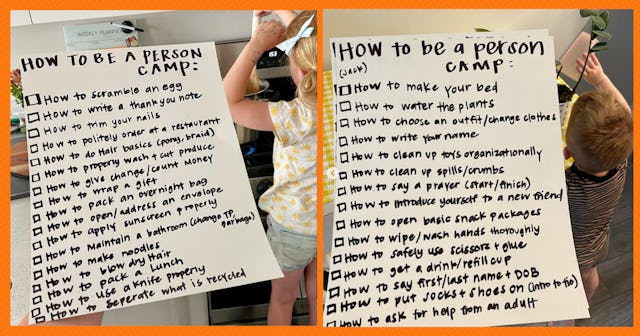 WEEKLY PLANNER
HOW TO BE A PERSON
CAMP:
HOW to scramble an egg
HOW to write a thank you note
HOW to trim your nails
HOW to politely order at a restaurant
HOW to do Hair basics (pony, braid)
HOW to properly wash + cut produce
HOW to give change/count money
HOW to wrap a gift
HOW to pack an overnight bag
HOW to open/address an envelope
HOW to apply sunscreen properly
HOW to maintain a bathroom (change TP,
garbage)
HOW to make noodles
HOW to blowdry hair
HOW to pack a lunch
HOW to use a knife properly
HOW to seperate what is recycled
HOW to be a person
(JACK)
CAMP:
HOW to make your bed
HOW to water the plants
HOW to choose an outfit/change clothes
HOW to write your name
HOW to clean up toys organizationally
HOW to clean up spills/crumbs
HOW to say a prayer (start/finish)
HOW to introduce yourself to a new friend
HOW to open basic snack packages
HOW to wipe/wash hands thoroughly
HOW to safely use scissors + glue
HOW to get a drink/refill cup
HOW to say first/last name + DOB
HOW to put socks + shoes on (intro to tie)
HOW to ask for help from an adult